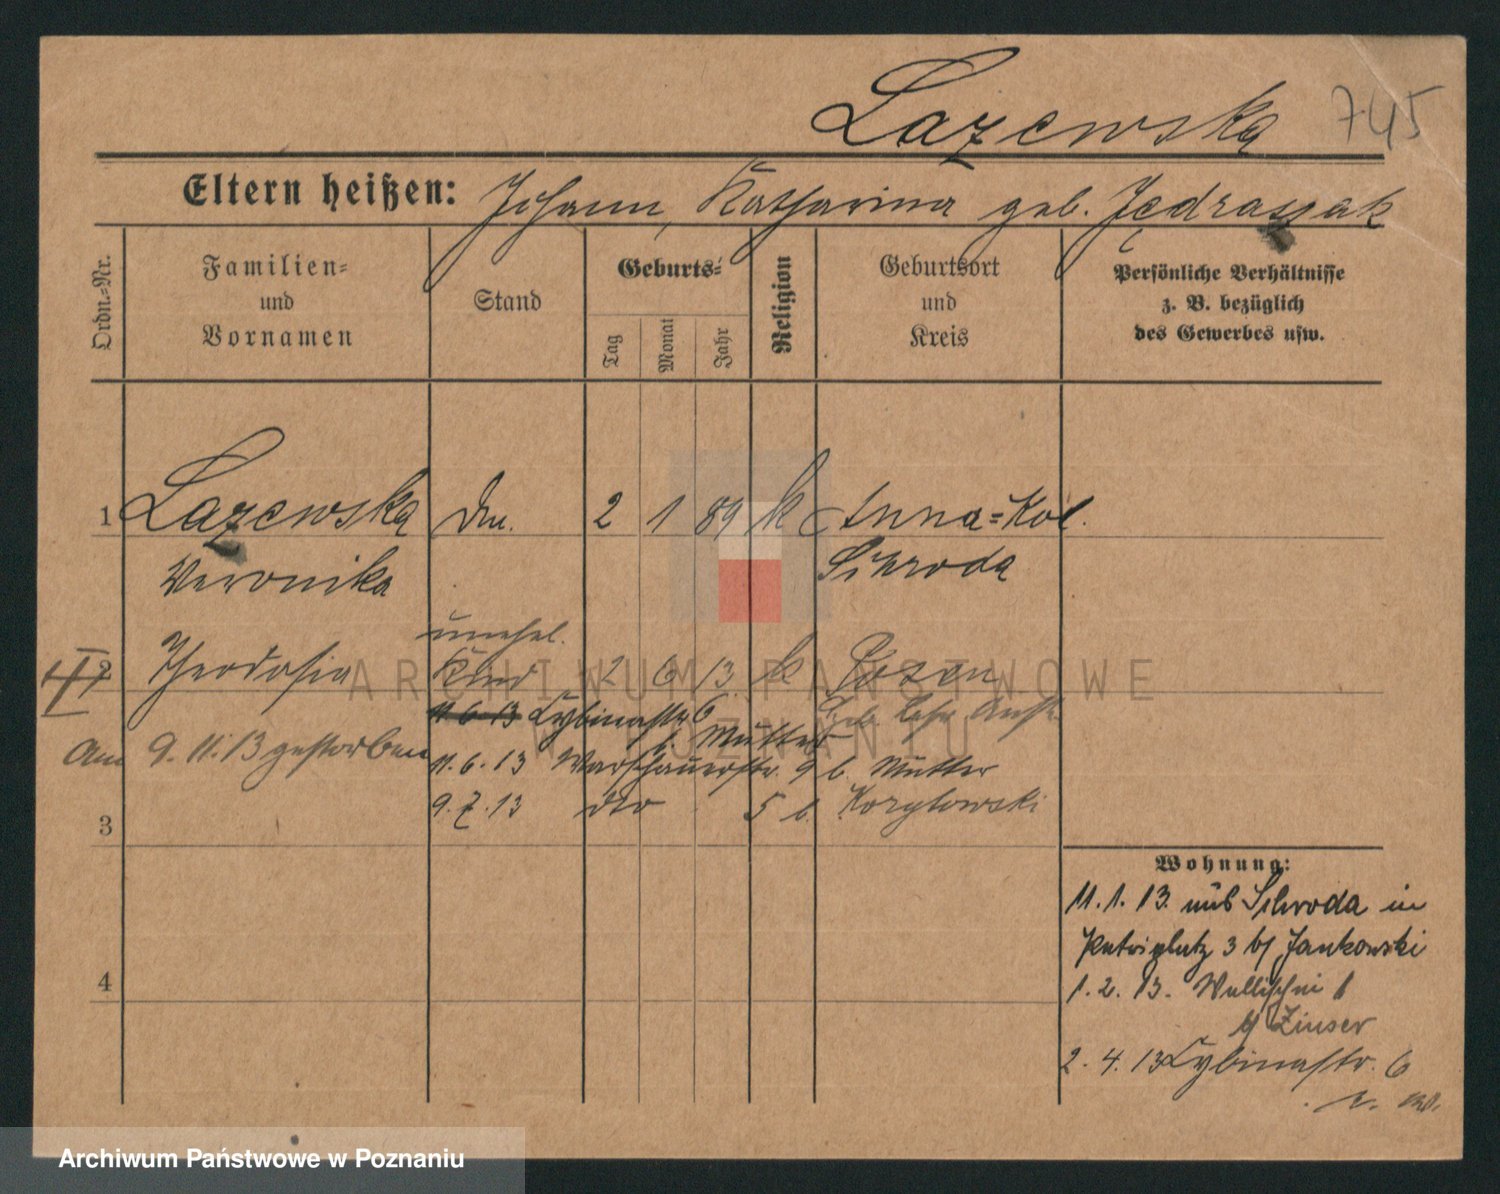 Lazewska 745
Eltern heißen: Johann, Katharina geb. Jędraszak
Ordn.-Nr.
Familien- und Vornamen
Stand
Geburts-
Tag
Monat
Jahr
Religion
Geburtsort und Kreis
Persönliche Verhältnisse z. B. bezüglich des Gewerbes usw.
1 Lazewska Dm. 2 1 89 k Anna-Kol.
Veronika Schroda
unehel.
2 Theodosia Kind 2 6 13 k Posen
11.6.13 Cybinastr 6
b. Mutter
Am 9.11.13 gestorben
11.6.13 Warschauerstr. 9 b. Mutter
9.7.13 dto 5 b. Korytowski
3
Wohnung:
11.1.13. aus Schroda in
Petriplatz 3 bj Jankowski
4
1.2.13. Wallischei 1
bj Zinser
2.4.13 Cybinastr. 6
ARCHIWUM PAŃSTWOWE
W POZNANIU
Archiwum Państwowe w Poznaniu